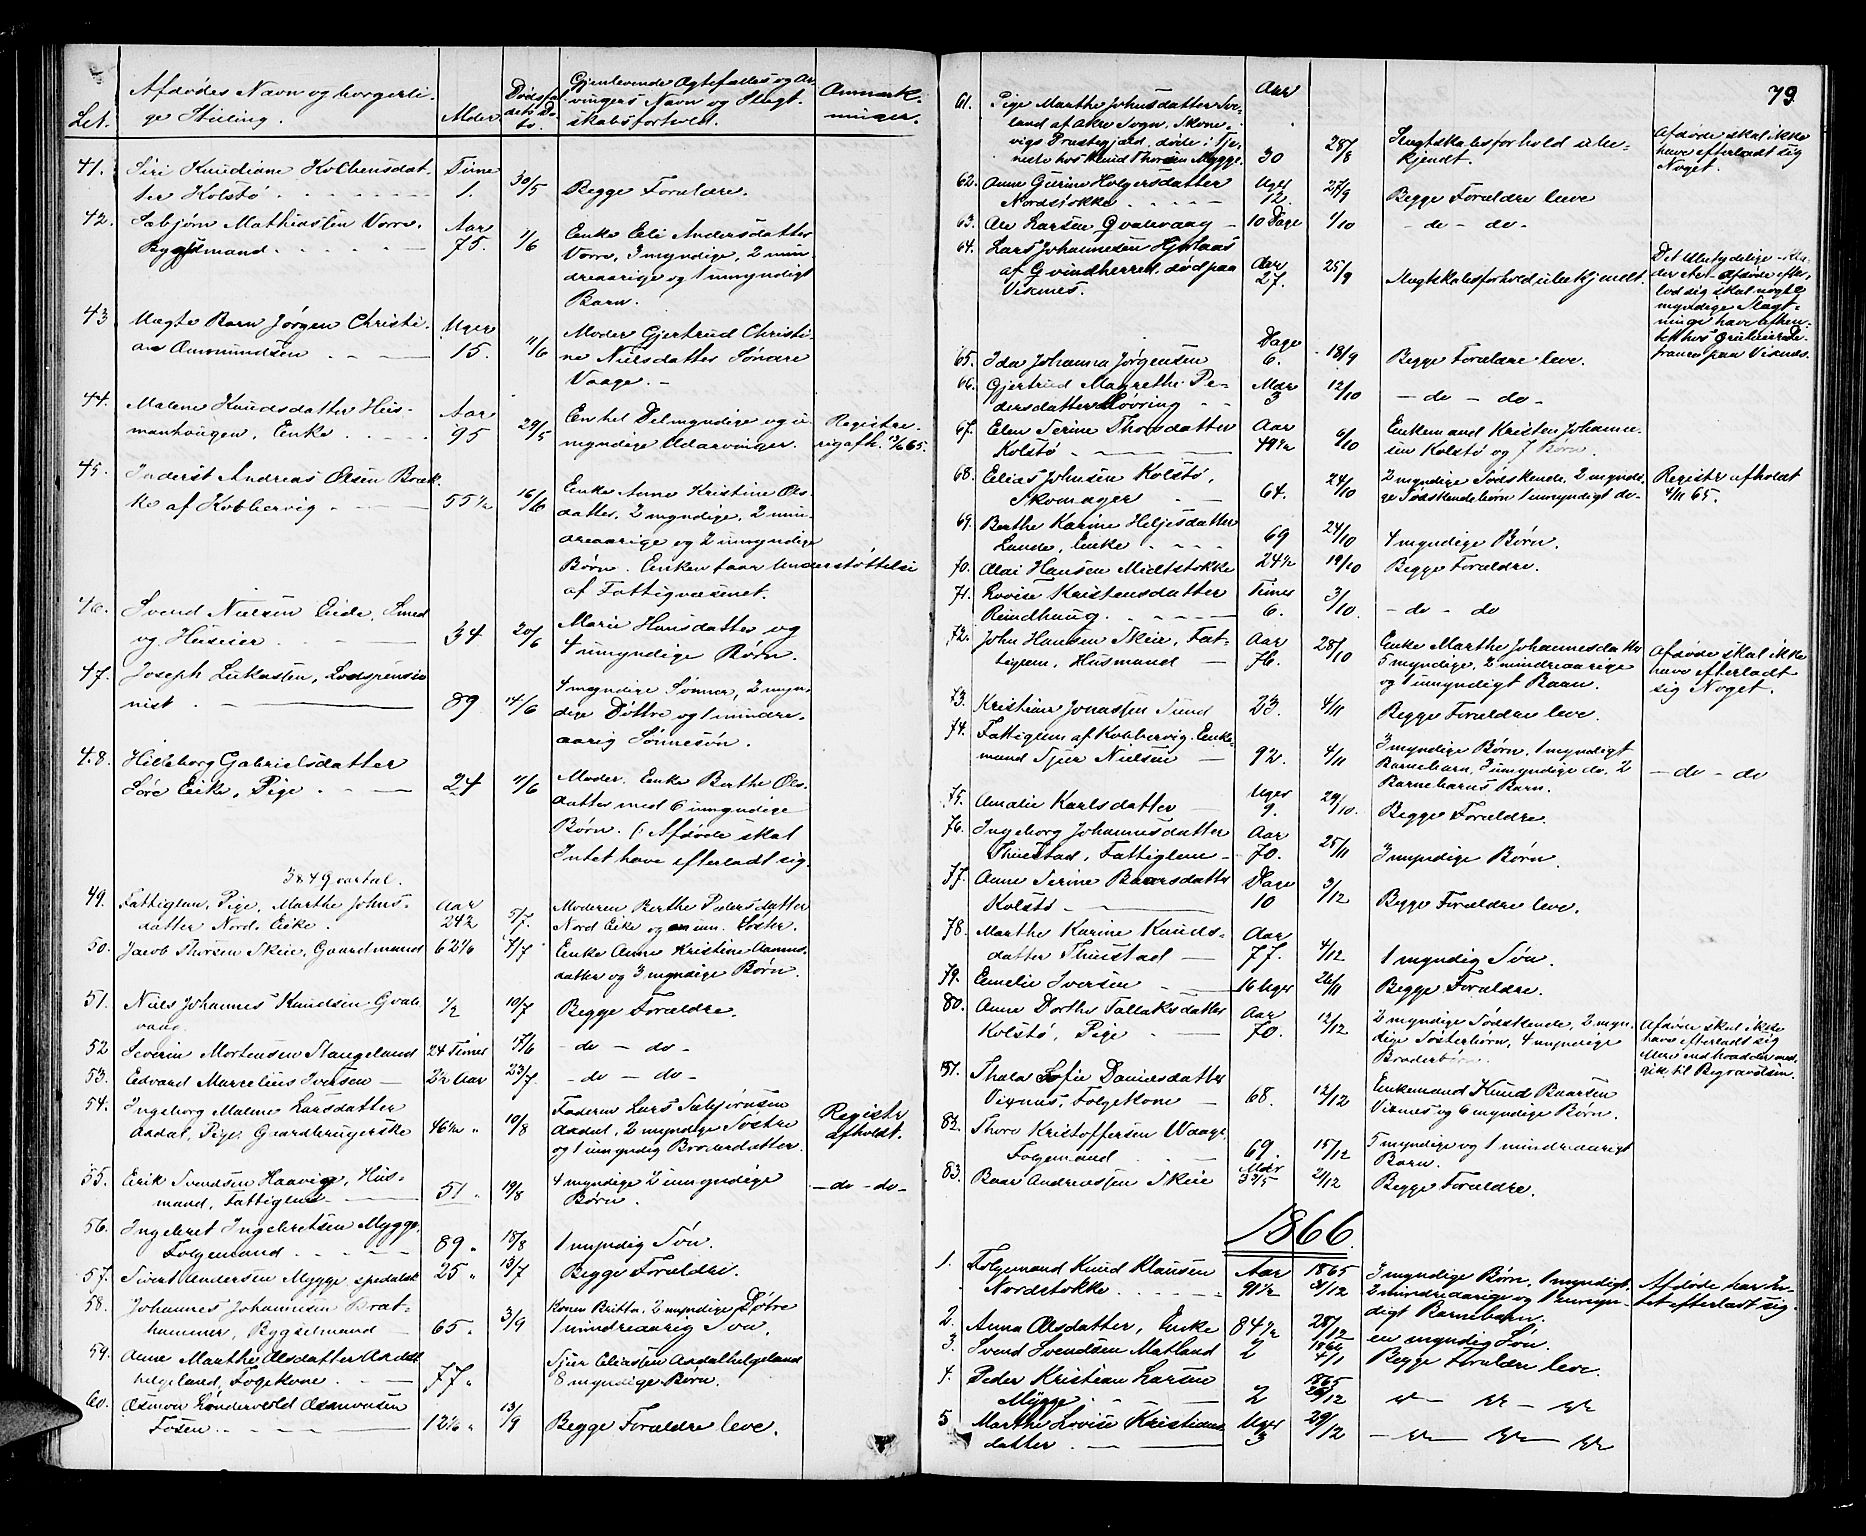 79
Let. Afdødes Navn og borgerli-
ge Stilling. Alder Dødsfal-
dets Da-
to. Gjenlevende Ægtefælles og Ar-
vingers Navn og Slægt-
skabsforhold. Anmærk-
ninger.
41. Siri Knudiane Kolbensdat-
ter Kolstø Time 1. 30/5 Begge Forældre.
42. Sæbjørn Mathiassen Vorre
Bygselmand. Aar 75. 1/6 Enke Eli Andersdatter
Vorre, 3 myndige, 2 min-
dreaarige og 1 umyndigt
Barn.
43 Uægte Barn Jørgen Christi-
an Aamundsen Uger 15. 11/6 Moder Gjertrud Christi-
ne Nielsdatter Søndre
Vaage.
44. Malene Knudsdatter Hus-
manhougen, Enke Aar 95 29/5 Enkel Delmyndige og u-
myndige Udarvinger. Registre-
rig afh. 65.
45. Inderst Andreas Olsen Bræk-
ke af Kobbervig 55 1/2 16/6 Enke Anne Kristine Ols-
datter, 2 myndige, 2 min-
dreaarige og 2 umyndige
Børn. Enken faar Understøttelse
af Fattigvæsenet.
46. Svend Nielsen Eide, Smed
og Huseier 34 20/6 Marie Hansdatter og
4 umyndige Børn.
47. Joseph Lukassen, Lodspensio-
nist. 89 14/6 4 myndige Sønner, 2 myn-
dige Døttre og 1 mindre-
aarig Sønnesøn.
48. Hilleborg Gabrielsdatter
Søre Eike, Pige 24 11/6 Moder. Enke Berthe Ols-
datter med 6 umyndige
Børn. (: Afdøde skal
Intet have efterladt sig.
3 & 4 Qvartal.
49. Fattiglem, Pige, Marthe Johns-
datter Nord. Eike. Aar 24 1/2 5/7. Moderen Berthe Pedersdatter
Nord Eike og en um. Søster.
50. Jacob Thorsen Skeie, Gaardmand 62 1/6 7/7 Enke Anne Kristine Monns-
datter og 3 myndige Børn.
51. Niels Johannes Knudsen Qvale-
vaag. 1/2 10/7 Begge Forældre.
52 Severin Mortensen Stangeland 24 Timer 17/6 - do - do -
53. Edvard Marcelius Iversen 2 1/2 Aar 23/7 - do - do -
54. Ingeborg Malene Larsdatter
Aadal, Pige, Gaardbrugerske 46 1/2 " 10/8 Faderen Lars Sæbjørnsen
Aadal, 2 myndige Søstre
og 1 umyndig Broderdatter. Registr.
afholdt.
55. Erik Svendsen Haavige, Hus-
mand, Fattiglem 51 " 19/8 4 myndige 2 umyndige
Børn. - do - do -
56. Ingebret Ingebretsen Mygge,
Folgemand 89 " 18/8 1 myndig Søn.
57. Sivert Andersen Mygge, spedalsk 25 " 13/7 Begge Forældre.
58. Johannes Johannesen Brat-
hammer, Bygselmand 65 " 3/9 Konen Britta, 2 myndige Døtre
1 mindreaarig Søn.
59. Anne Marthe Olsdatter Aadal-
helgeland, Fogekone 77 " Sjur Eliassen Aadalhelgeland
8 myndige Børn.
60. Asmon Søndervold Asmonsen
Fosen 12 1/6 " 13/9 Begge Forældre leve.
61. Pige Marthe Johnsdatter Sve-
land af Akre Sogn, Skone-
vigs Præstegjæld, døde i Tje-
neste hos Knud Thorsen Mygge. Aar 30 28/8 Slægtskabsforhold ube-
kjendt. Afdøde skal ikke
have efterladt sig
Noget.
62. Anne Gurine Holgersdatter
Nordstokke Uger 12. 27/9 Begge Forældre leve
63. Ole Larsen Qvalevaag 10 Dage 1/10 - do - do -
64. Lars Johannesen Hjelaas
af Qvindherred, død paa
Vixnes. Aar 27. 25/9 Slægtskabsforhold ubekjendt. Det ubetydelige
der efter Afdøde efter-
lod sig skal nogle
myndige Slægt-
ninge have afhen-
tet hos
paa Vixnes.
65. Ida Johanna Jørgensen Dage 6. 18/9 Begge Forældre leve.
66. Gjertrud Magrethe Pe-
dersdatter Løvring Mdr 3 12/10 - do - do -
67. Elen Serine Thorsdatter
Kolstø Aar 49 1/2 6/10 Enkemand Kristen Johanne-
sen Kolstø og 7 Børn.
68. Elias Johnsen Kolstø,
Skomager 64. 24/10 2 myndige Sødskende, 2 myndi-
ge Sødskendebørn 1 umyndigt do- Registr afholdt
4/11 65.
69. Berthe Karine Heljesdatter
Lunde, Enke 69 24/10 4 myndige Børn.
70. Olai Hansen Midtstokke 24 1/2 19/10 Begge Forældre.
71. Lovise Kristensdatter
Reindhaug. Timer 6. 3/10 - do - do
72. John Hansen Skeie, Fat-
tiglem, Husmand Aar 76. 28/10 Enke Marthe Johannesdatter
5 myndige, 2 mindreaarige
og 1 umyndigt Baan. Afdøde skal ikke
have efterladt
sig Noget.
73. Kristian Jonassen Sund 23. 4/11 Begge Forældre leve.
74. Fattiglem af Kobbervig. Enke-
mand Sjur Nielsen 92. 4/11 3 myndige Børn, 1 myndigt
Barnebarn, 3 umyndige do, 2
Barnebarns Barn. - do - do
75. Amalie Karlsdatter Uger 9. 29/10. Begge Forældre.
76. Ingeborg Johannesdatter
Thuestad, Fattiglem Aar 70. 25/11 3 myndige Børn.
77. Anne Serine Baarsdatter
Kolstø Dage 10 3/12 Begge Forældre leve.
78. Marthe Karine Knuds-
datter Thuestad Aar 77. 4/12 1 myndig Søn.
79. Emelie Iversen 16 Uger 26/11 Begge Forældre.
80. Anne Dorthe Tallaksdatter
Kolstø, Pige Aar 70. 12/12 2 myndige Sødskende, 2 myn-
dige Søsterbørn, 4 myndige
Broderbørn. Afdøde skal ikke
have efterladt sig
Mere end hvad der med-
gik til Begravelsen.
81. Thala Sofie Danielsdatter
Vixnes, Folgekone 68. 12/12 Enkemand Knud Baarsen
Vixnes og 6 myndige Børn.
82. Thore Kristoffersen Waage
Folgemand 69. 15/12 5 myndige og 1 mindreaarigt
Barn.
83. Baar Andreassen Skeie Mdr 3 2/5 21/12 Begge Forældre.
1866.
1. Folgemand Knud Klausen
Nordstokke Aar 91 1/2 1865
31/12 3 myndige Børn, 1 myndigt,
2 mindreaarige og 1 umyn-
digt Barnebarn. Afdøde har In-
tet efterladt sig.
2. Anna Olsdatter, Enke 84 1/2 28/12 en myndig Søn.
3. Svend Svendsen Matland 2 1866
4/1 Begge Forældre leve.
4. Peder Kristian Larsen
Mygge 2 1865
28/12
5 Marthe Lovise Kristians-
datter Uger 3 29/12